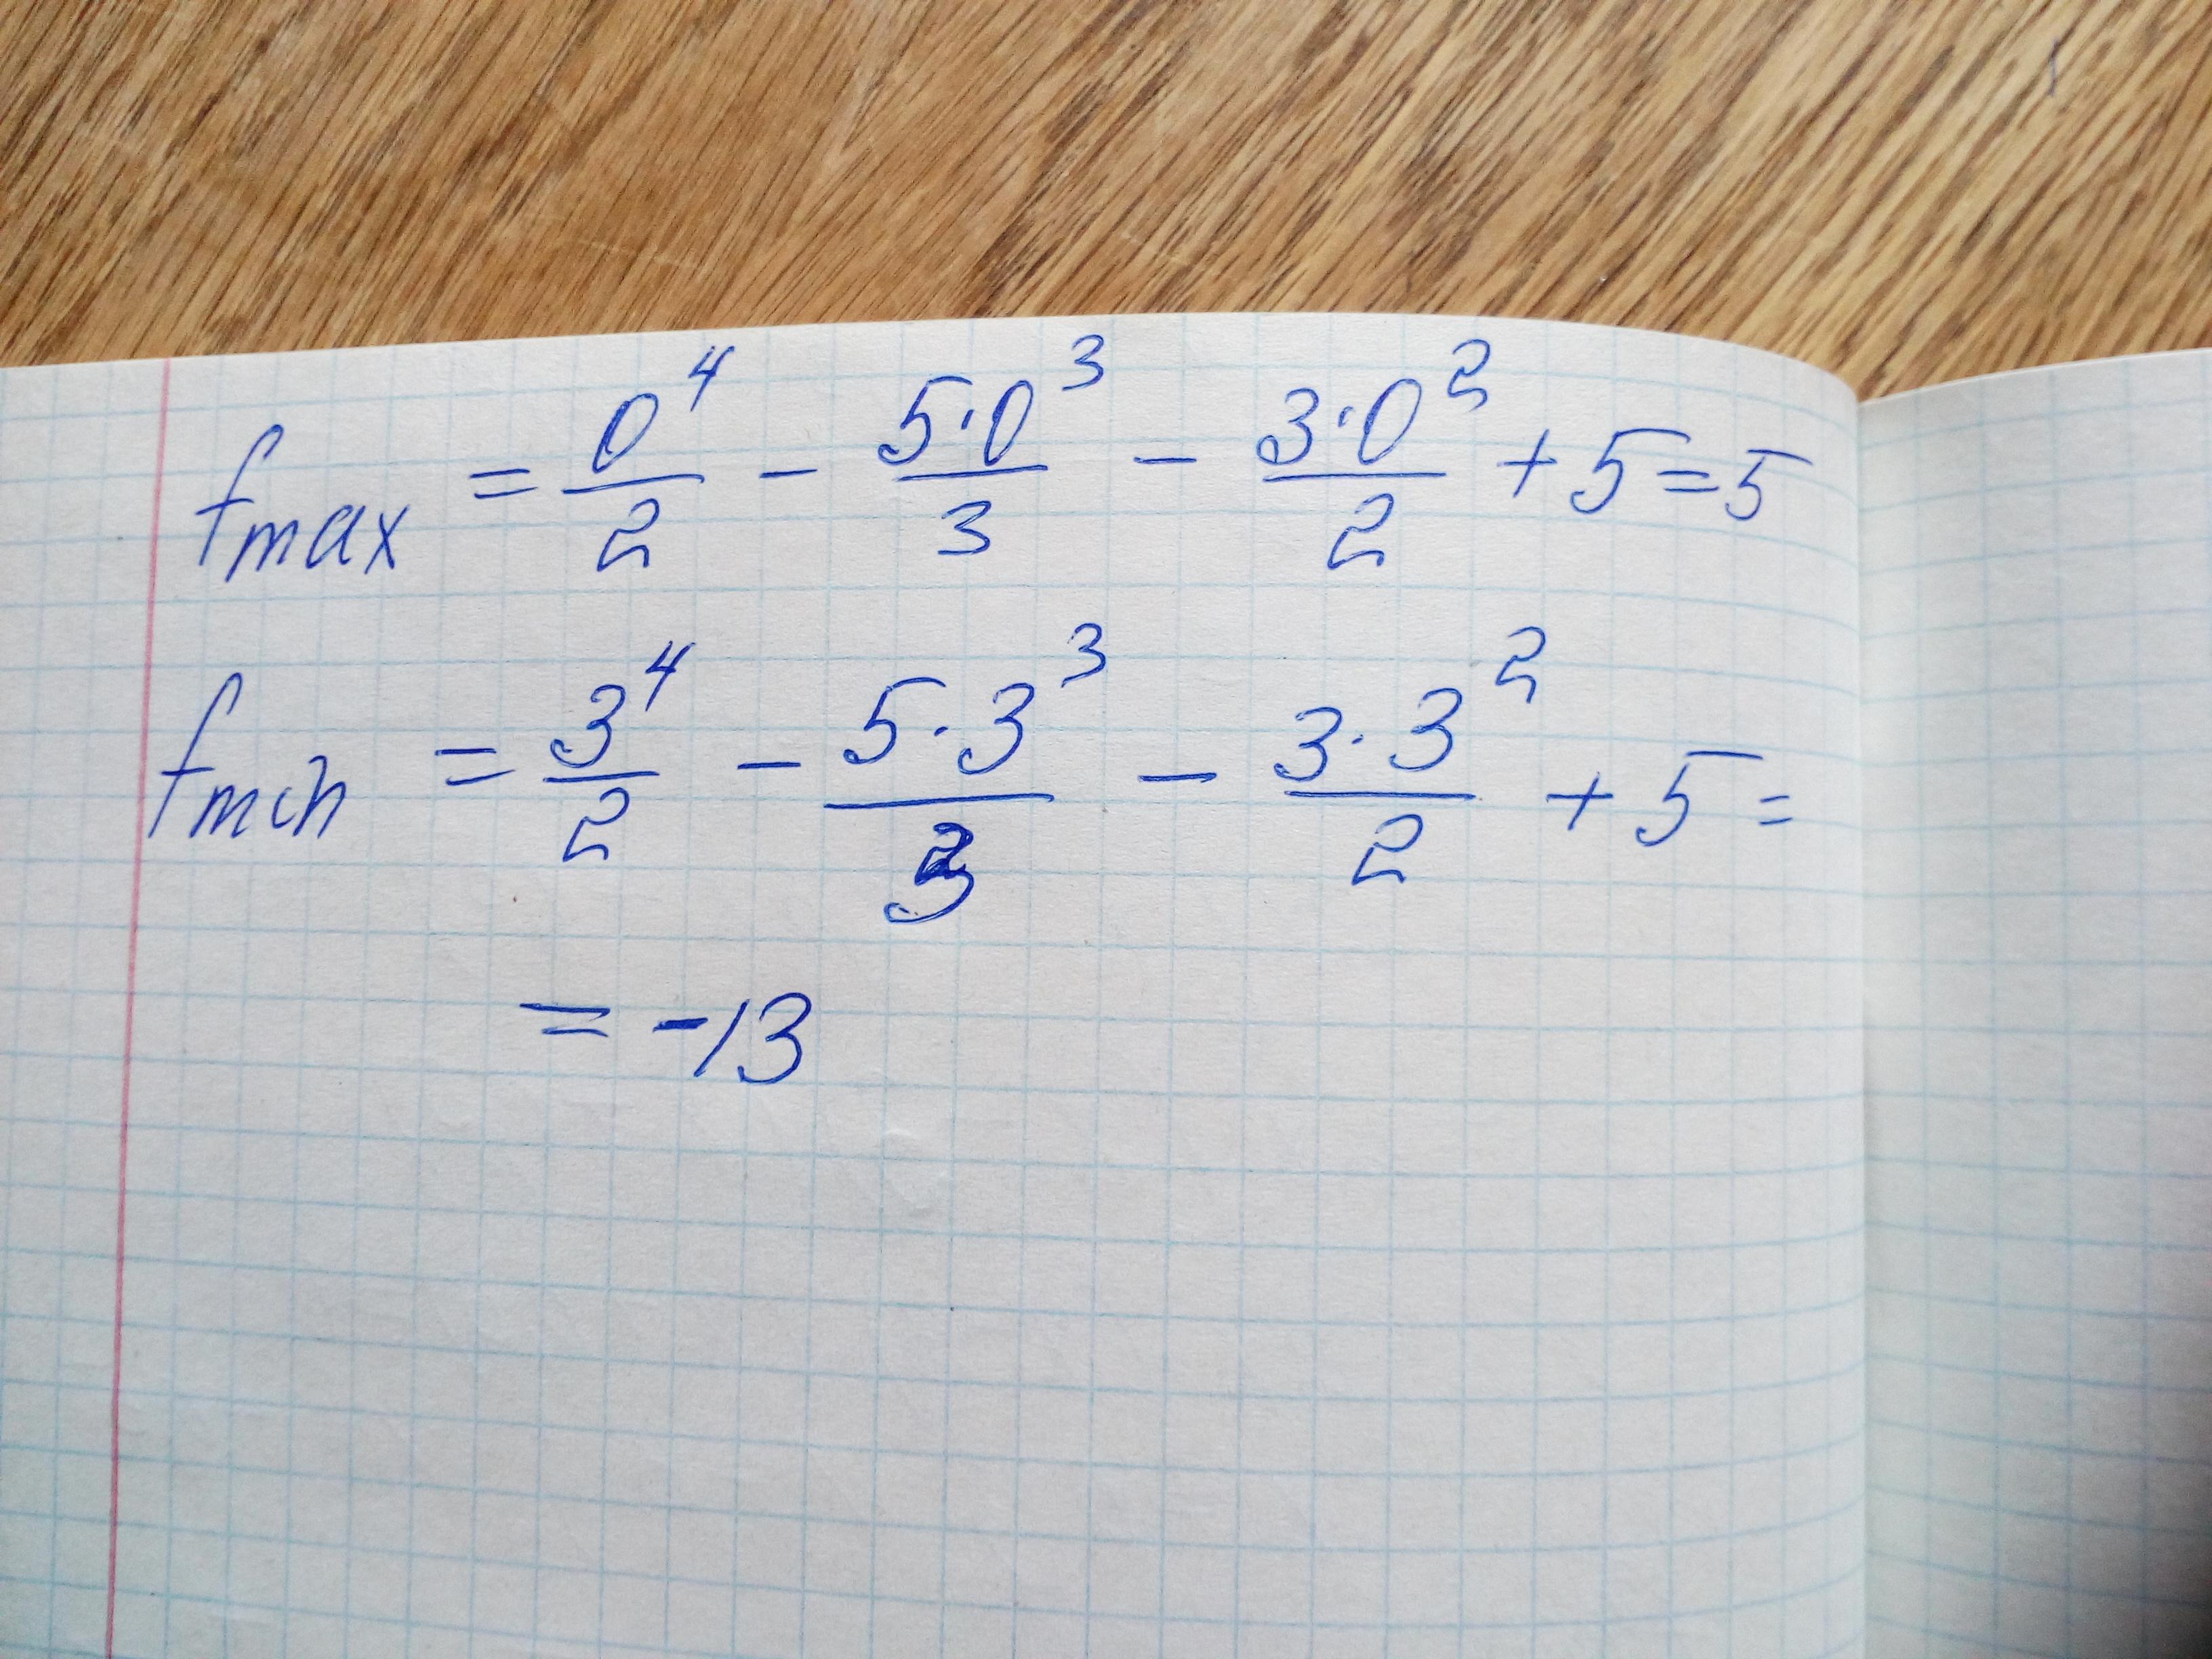 f_max = 0^4/2 - 5·0^3/3 - 3·0^2/2 + 5 = 5
f_min = 3^4/2 - 5·3^3/3 - 3·3^2/2 + 5 =
= -13